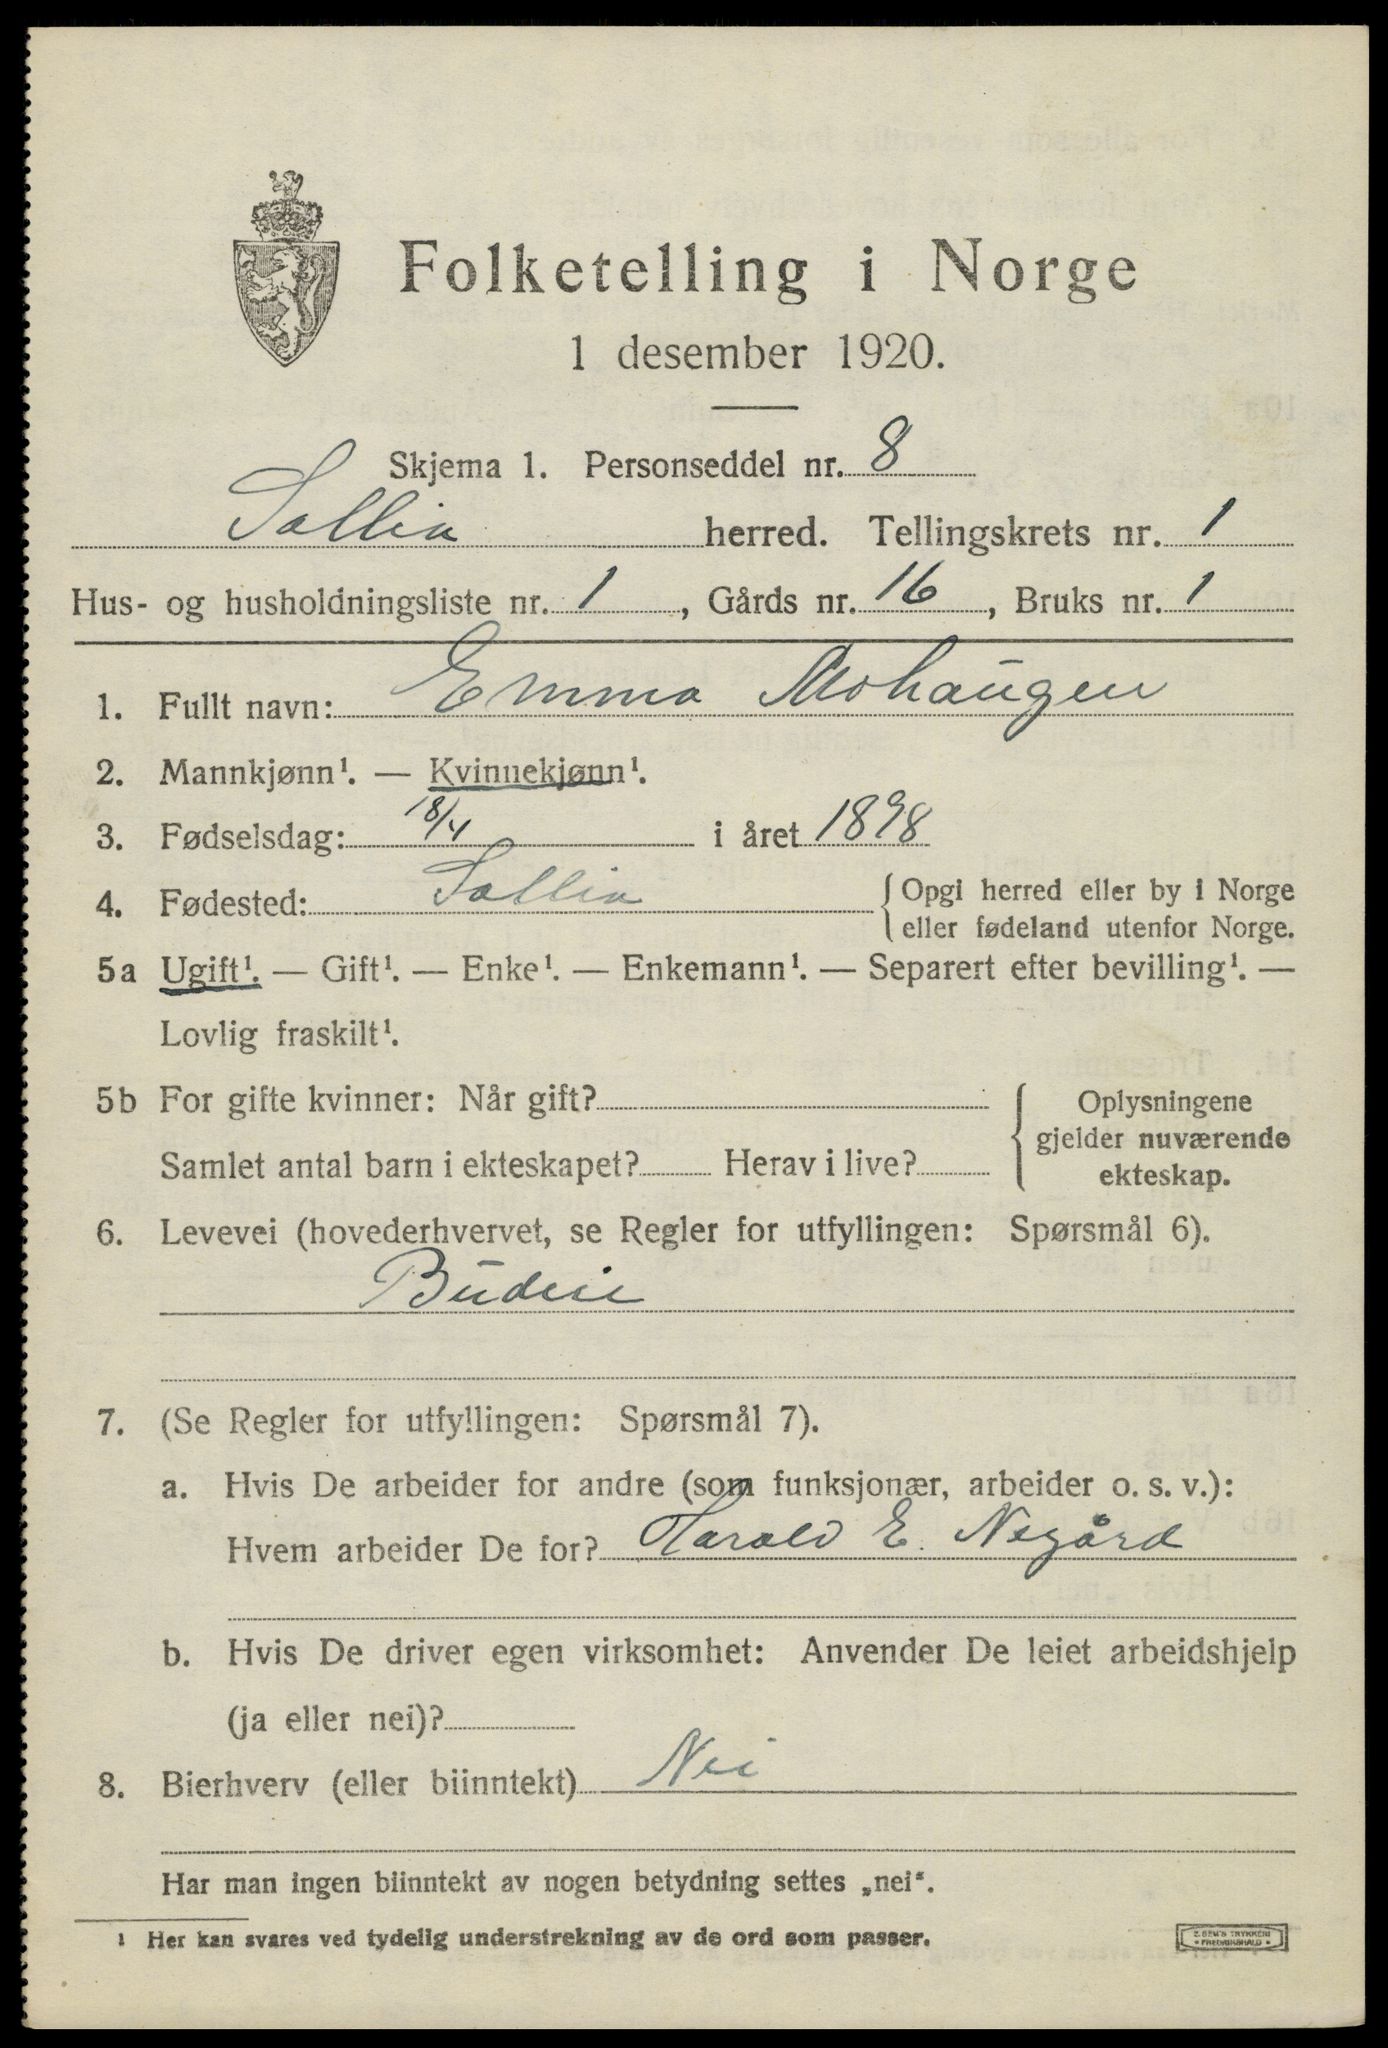 Folketelling i Norge
1 desember 1920.
Skjema 1. Personseddel nr. 8
Sollia herred. Tellingskrets nr. 1
Hus- og husholdningsliste nr. 1, Gårds nr. 16, Bruks nr. 1
1. Fullt navn: Emma Mohaugen
2. Mannkjønn¹. — Kvinnekjønn¹.
3. Fødselsdag: 18/4 i året 1898
4. Fødested: Sollia { Opgi herred eller by i Norge
eller fødeland utenfor Norge.
5a Ugift¹. — Gift¹. — Enke¹. — Enkemann¹. — Separert efter bevilling¹. —
Lovlig fraskilt¹.
5b For gifte kvinner: Når gift? { Oplysningene
gjelder nuværende
Samlet antal barn i ekteskapet? Herav i live?
ekteskap.
6. Levevei (hovederhvervet, se Regler for utfyllingen: Spørsmål 6).
Budeie
7. (Se Regler for utfyllingen: Spørsmål 7).
a. Hvis De arbeider for andre (som funksjonær, arbeider o. s. v.):
Hvem arbeider De for? Harald E. Negård
b. Hvis De driver egen virksomhet: Anvender De leiet arbeidshjelp
(ja eller nei)?
8. Bierhverv (eller biinntekt) Nei
Har man ingen biinntekt av nogen betydning settes „nei“.
1 Her kan svares ved tydelig understrekning av de ord som passer.
FREDRIKSHALD